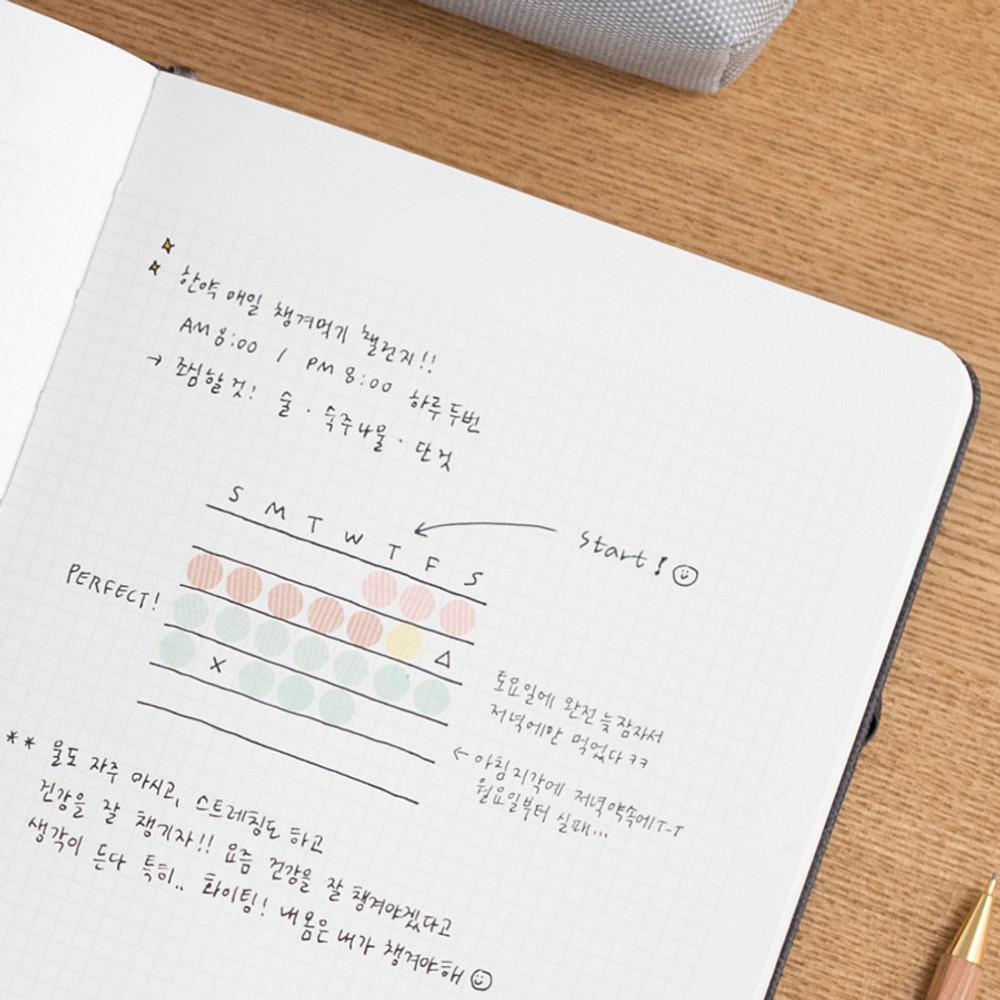 한약 매일 챙겨먹기 챌린지!!
AM 8:00 / PM 8:00 하루 두번
→ 조심할 것! 술 · 숙주나물 · 단것
S M T W T F S
← Start! ☺
PERFECT!
△
×
토요일에 완전 늦잠자서
저녁에만 먹었다 ㅋㅋ
← 아침 지각에 저녁약속에 T-T
월요일부터 실패...
** 물도 자주 마시고, 스트레칭도 하고
건강을 잘 챙기자!! 요즘 건강을 잘 챙겨야겠다고
생각이 든다 특히.. 화이팅! 내 몸은 내가 챙겨야해 ☺